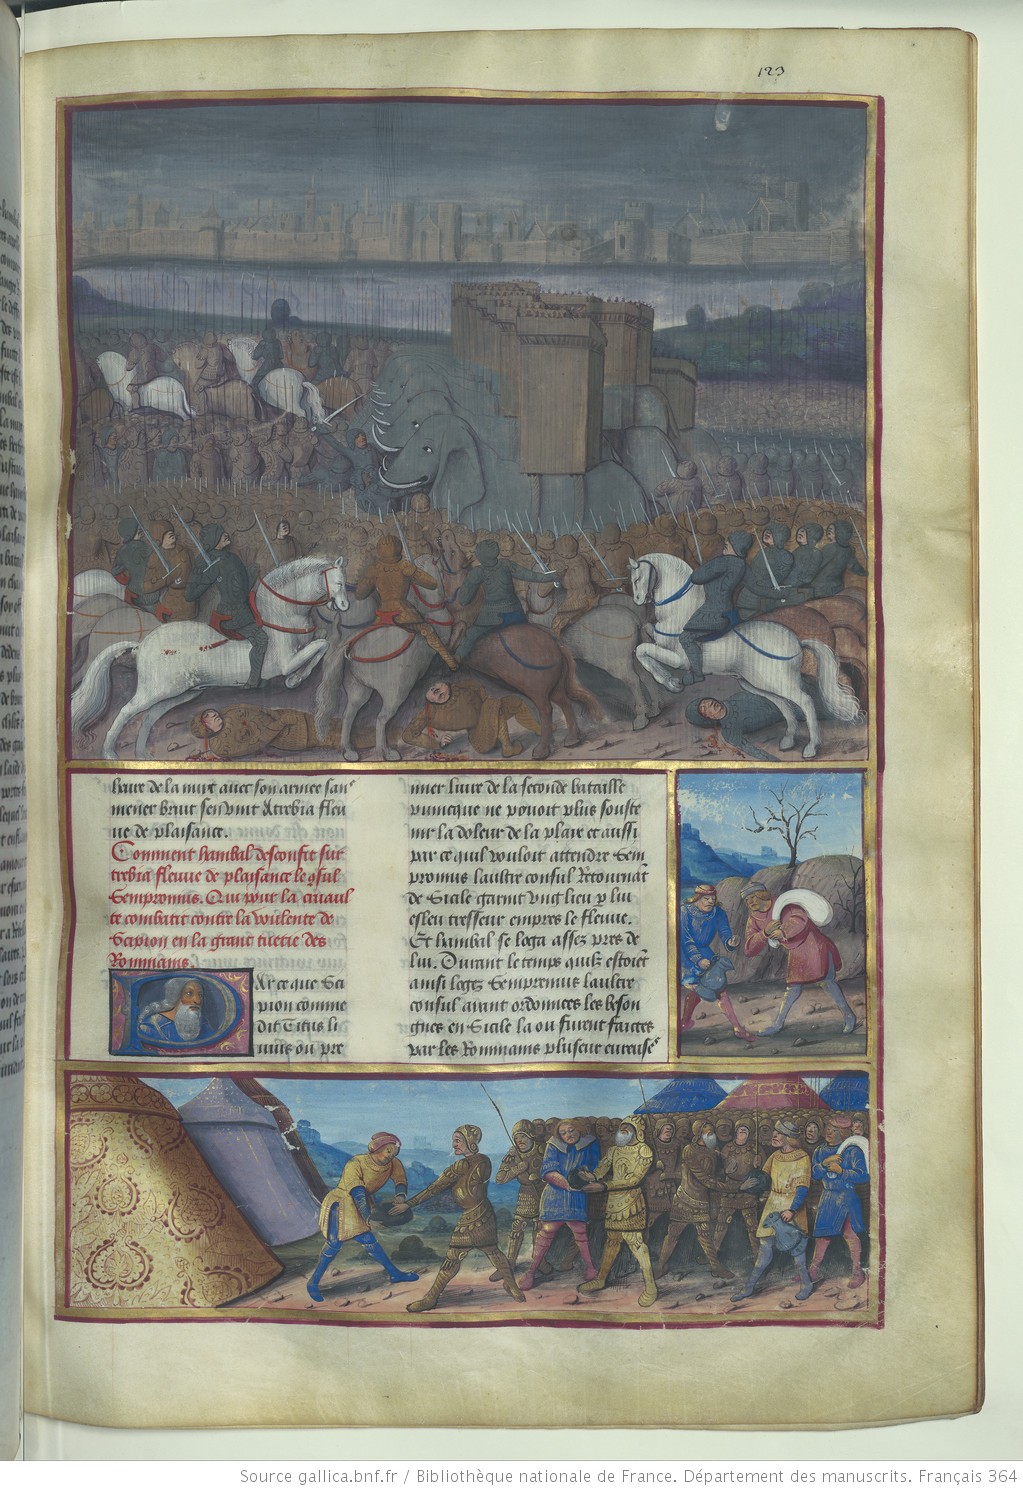 123
heure de la nuyt avec son armee sans
mener bruit sen vint a trebia fleu
ve de plaisance.
Comment hanibal desconfit sur
trebia fleuve de plaisance le gsul
Sempromus. Qui pour la cruaul
te combatit contre la voulente de
Scipion en la grant tuerie des
Rommains.
Par ce que Sci
pion comme
dit Titus li
vius ou pre
mier livre de la seconde bataille
punicque ne povoit plus souste
nir la doleur de la plaie et aussi
par ce quil vouloit attendre Sem
promus laultre consul Retournāt
de Sicile garnit ung lieu p lui
esleu tresseur empres le fleuve.
Et hanibal se loga assez pres de
lui. Durant le temps quilz estoiēt
ainsi logez Sempromus laultre
consul avant ordonnees les beson
gnes en Sicile la ou furent faictes
par les Rommains plusieur eureuses
Source gallica.bnf.fr / Bibliothèque nationale de France. Département des manuscrits. Français 364